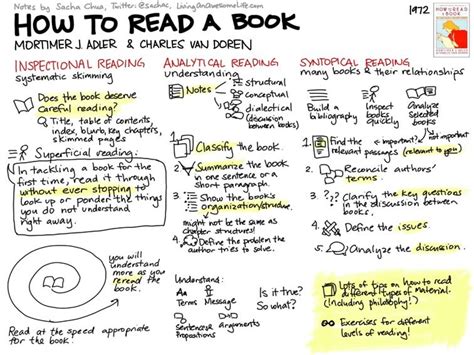 Notes by Sacha Chua, Twitter: @sachac, LivingAnAwesomeLife.com
HOW TO READ A BOOK
MORTIMER J. ADLER & CHARLES VAN DOREN
1972
HOW TO READ
A BOOK
INSPECTIONAL READING
systematic skimming
Does the book deserve
careful reading?
Title, table of contents,
index, blurb, key chapters,
skimmed pages
Superficial reading:
In tackling a book for the
first time, read it through
without ever stopping to
look up or ponder the things
you do not understand
right away.
you will
understand
more as
you reread
the book.
Read at the speed appropriate
for the book.
ANALYTICAL READING
understanding
Notes
structural
conceptual
dialectical
(discussion
between books)
1. Classify the book.
2. Summarize the book
in one sentence or a
short paragraph.
3. Show the book's
organization/structure
might not be the same as
chapter structures!
4. Define the problem the
author tries to solve.
Understand:
Aa
Terms
Message
Sentences
Propositions
arguments
Is it true?
So what?
SYNTOPICAL READING
many books & their relationships
Build a
bibliography
Inspect
books
quickly
Analyze
selected
books
1. Find the
relevant passages
important?
not
important
(relevant to you)
2. Reconcile authors'
terms.
3. ??? Clarify the key questions
in the discussion between
books.
4. Define the issues.
5. Analyze the discussion.
Lots of tips on how to read
different types of material.
(Including philosophy!)
Exercises for different
levels of reading!